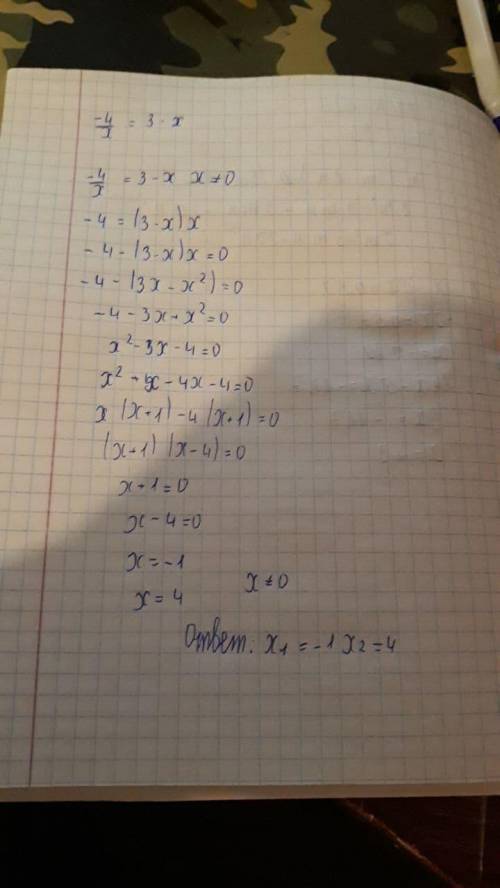 -4/x = 3 - x
-4/x = 3 - x x ≠ 0
-4 = (3-x)x
-4 - (3-x)x = 0
-4 - (3x - x²) = 0
-4 - 3x + x² = 0
x² - 3x - 4 = 0
x² + x - 4x - 4 = 0
x (x+1) - 4 (x+1) = 0
(x+1) (x-4) = 0
x + 1 = 0
x - 4 = 0
x = -1
x = 4 x ≠ 0
Ответ: x₁ = -1 x₂ = 4